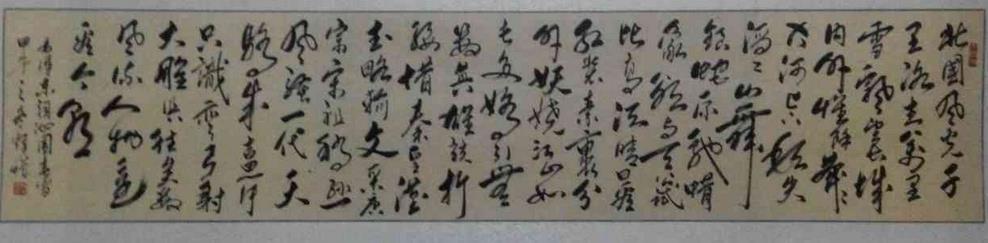 北國風光千
里冰封萬里
雪飄望長城
内外惟餘莽々
大河上下頓失
滔々山舞
銀蛇原馳蜡
象欲与天公試
比高須晴日看
紅裝素裹分
外妖嬈江山如
此多嬌引無
數英雄競折
腰惜秦皇漢
武略輸文采唐
宗宋祖稍遜
風騷一代天
驕成吉思汗
只識彎弓射
大雕俱往矣數
風流人物還
看今朝
毛澤東詞沁園春雪
甲午之春